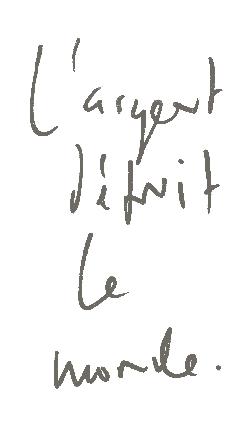 L'argent
détruit
le
monde.